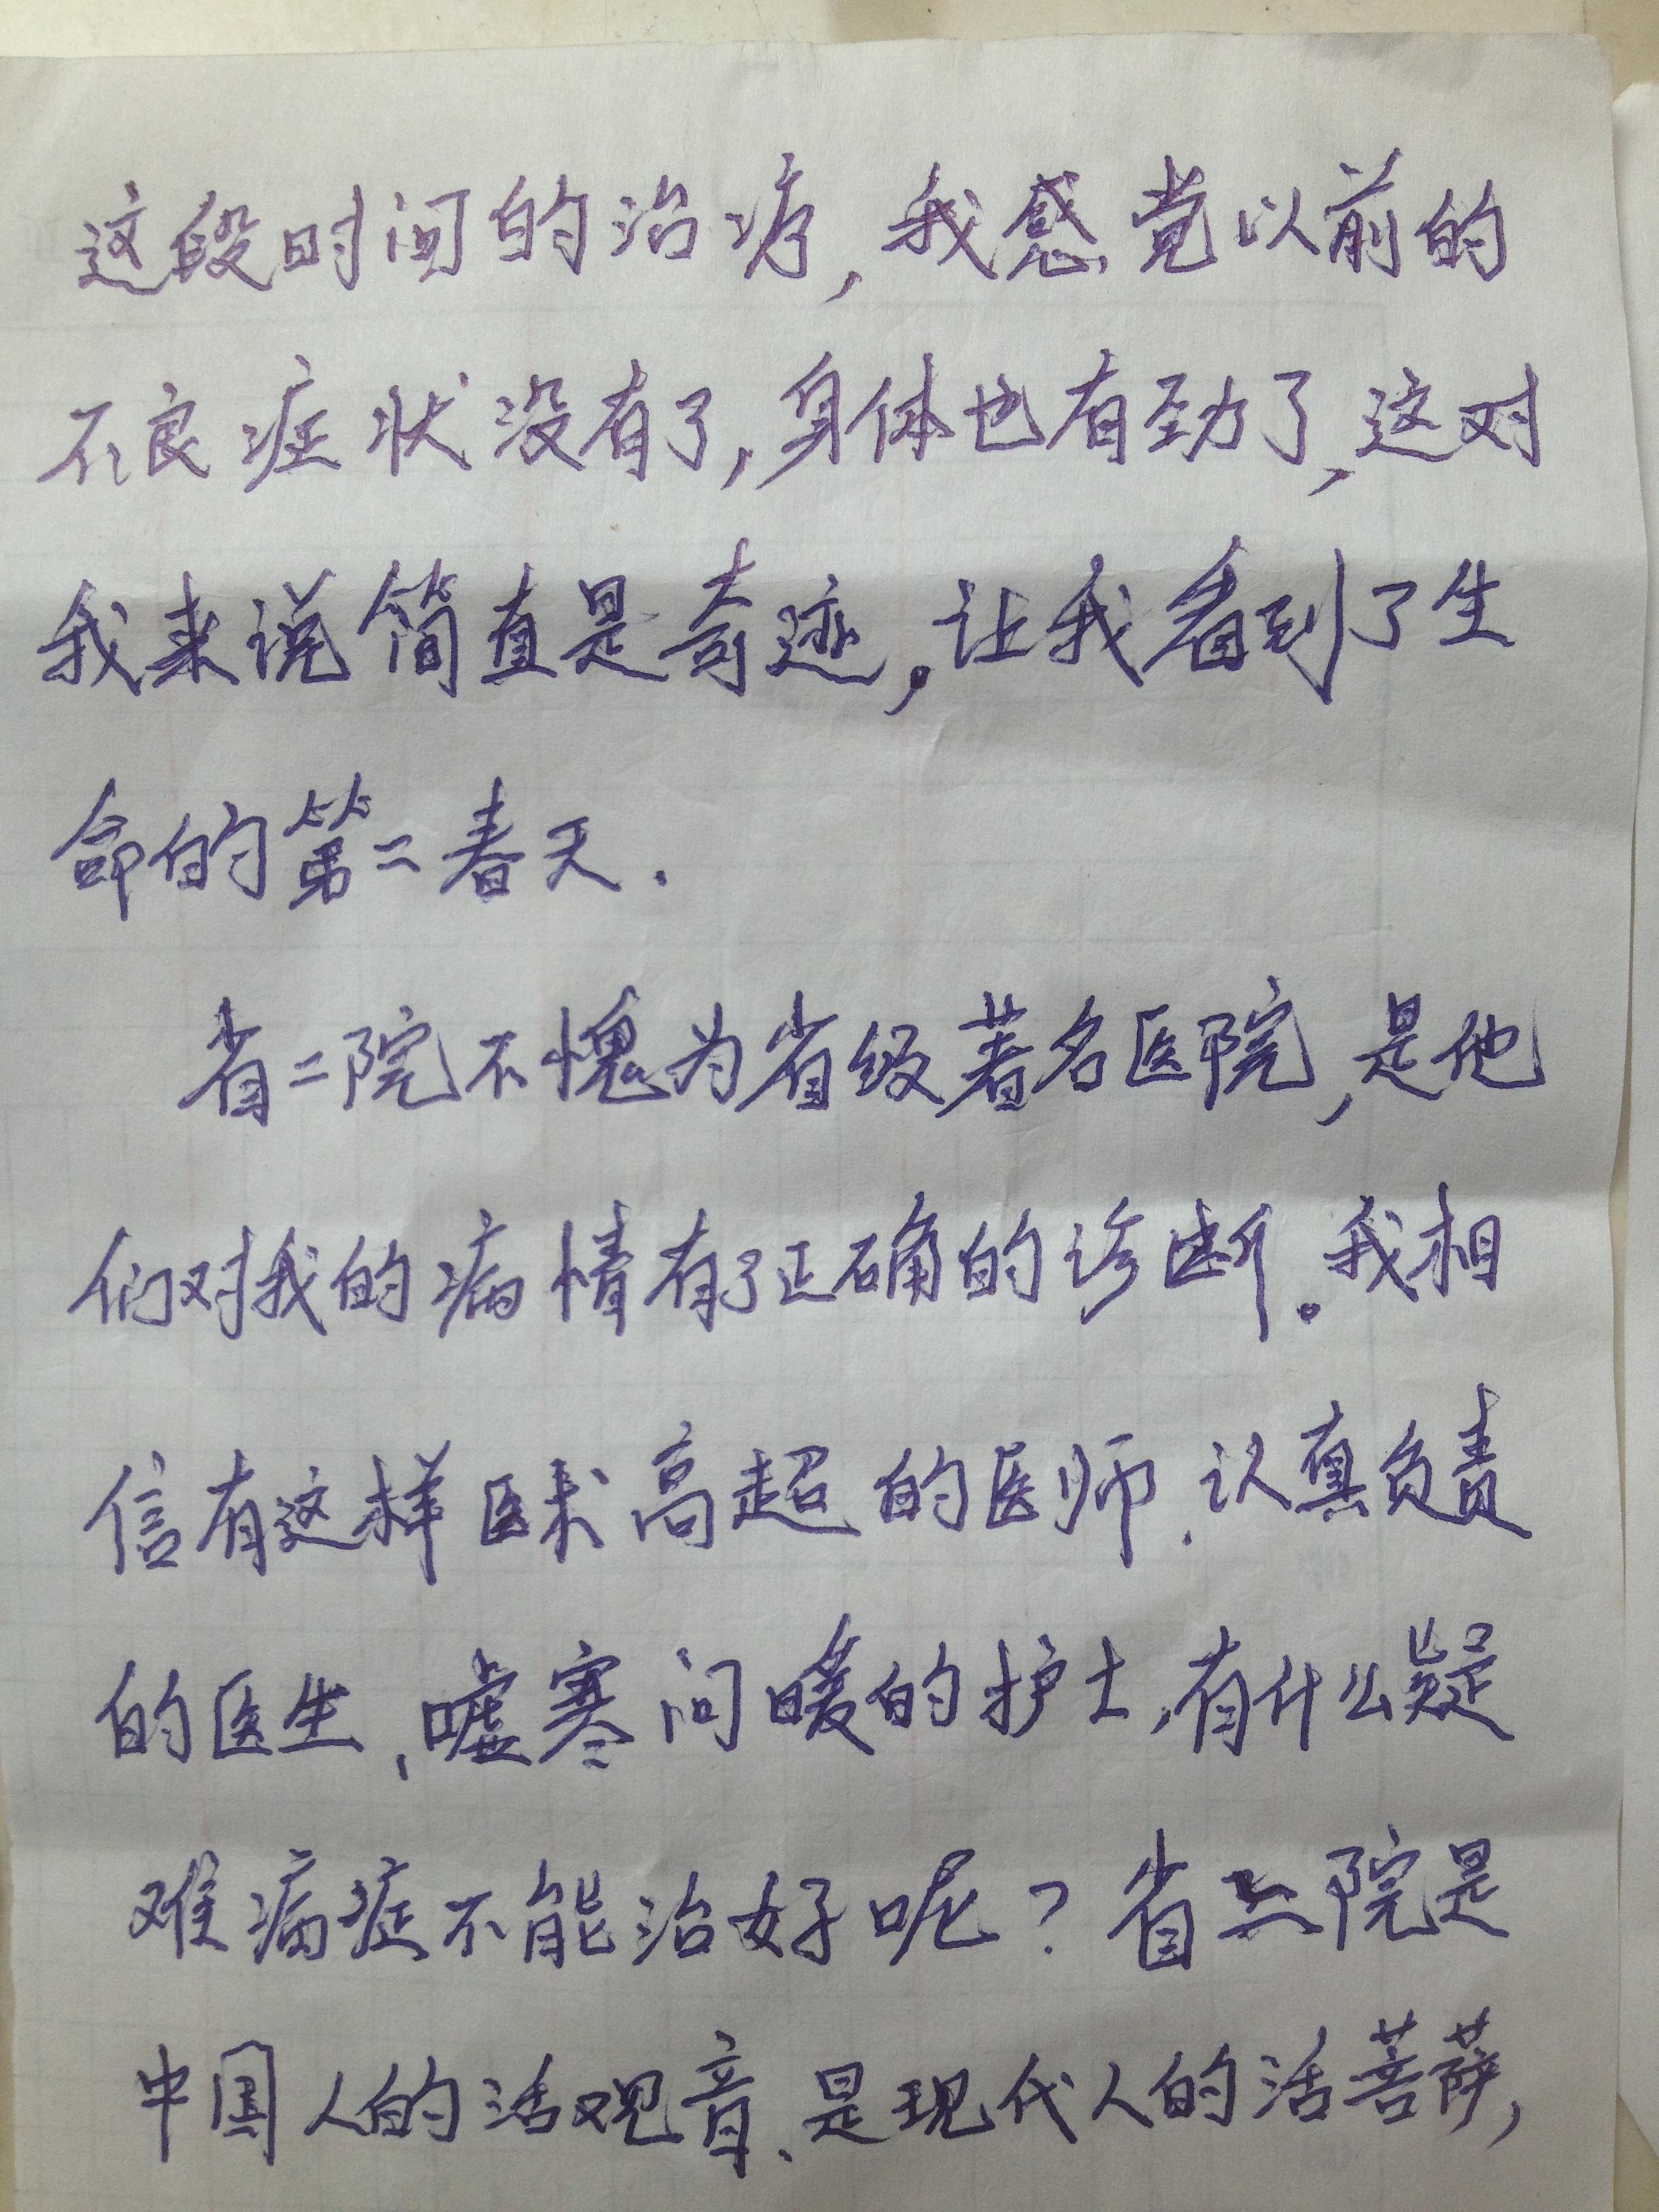 这段时间的治疗,我感觉以前的
不良症状没有了,身体也有劲了,这对
我来说简直是奇迹,让我看到了生
命的第二春天.
省二院不愧为省级著名医院,是他
们对我的病情有了正确的诊断。我相
信有这样医术高超的医师、认真负责
的医生、嘘寒问暖的护士,有什么疑
难病症不能治好呢?省二院是
中国人的活观音、是现代人的活菩萨,